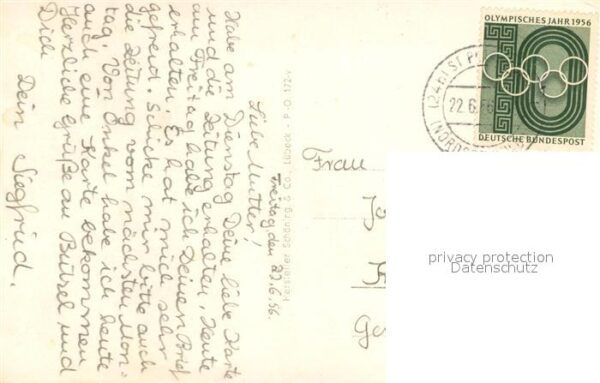 Freitag den 22.6.56.
Liebe Mutter!
Habe am Dienstag Deine liebe Karte
und die Zeitung erhalten. Heute
am Freitag habe ich Deinen Brief
erhalten. Es hat mich sehr
gefreut. Schicke mir bitte auch
die Zeitung vom nächsten Mon-
tag. Von Onkel habe ich heute
auch eine Karte bekommen
Herzliche Grüße an Butzel und
Dich
Dein Siegfried.
Hersteller: Schöning & Co., Lübeck
Frau
OLYMPISCHES JAHR 1956
DEUTSCHE BUNDESPOST
(24b) ST P
22.6.56
(NORDS
privacy protection
Datenschutz